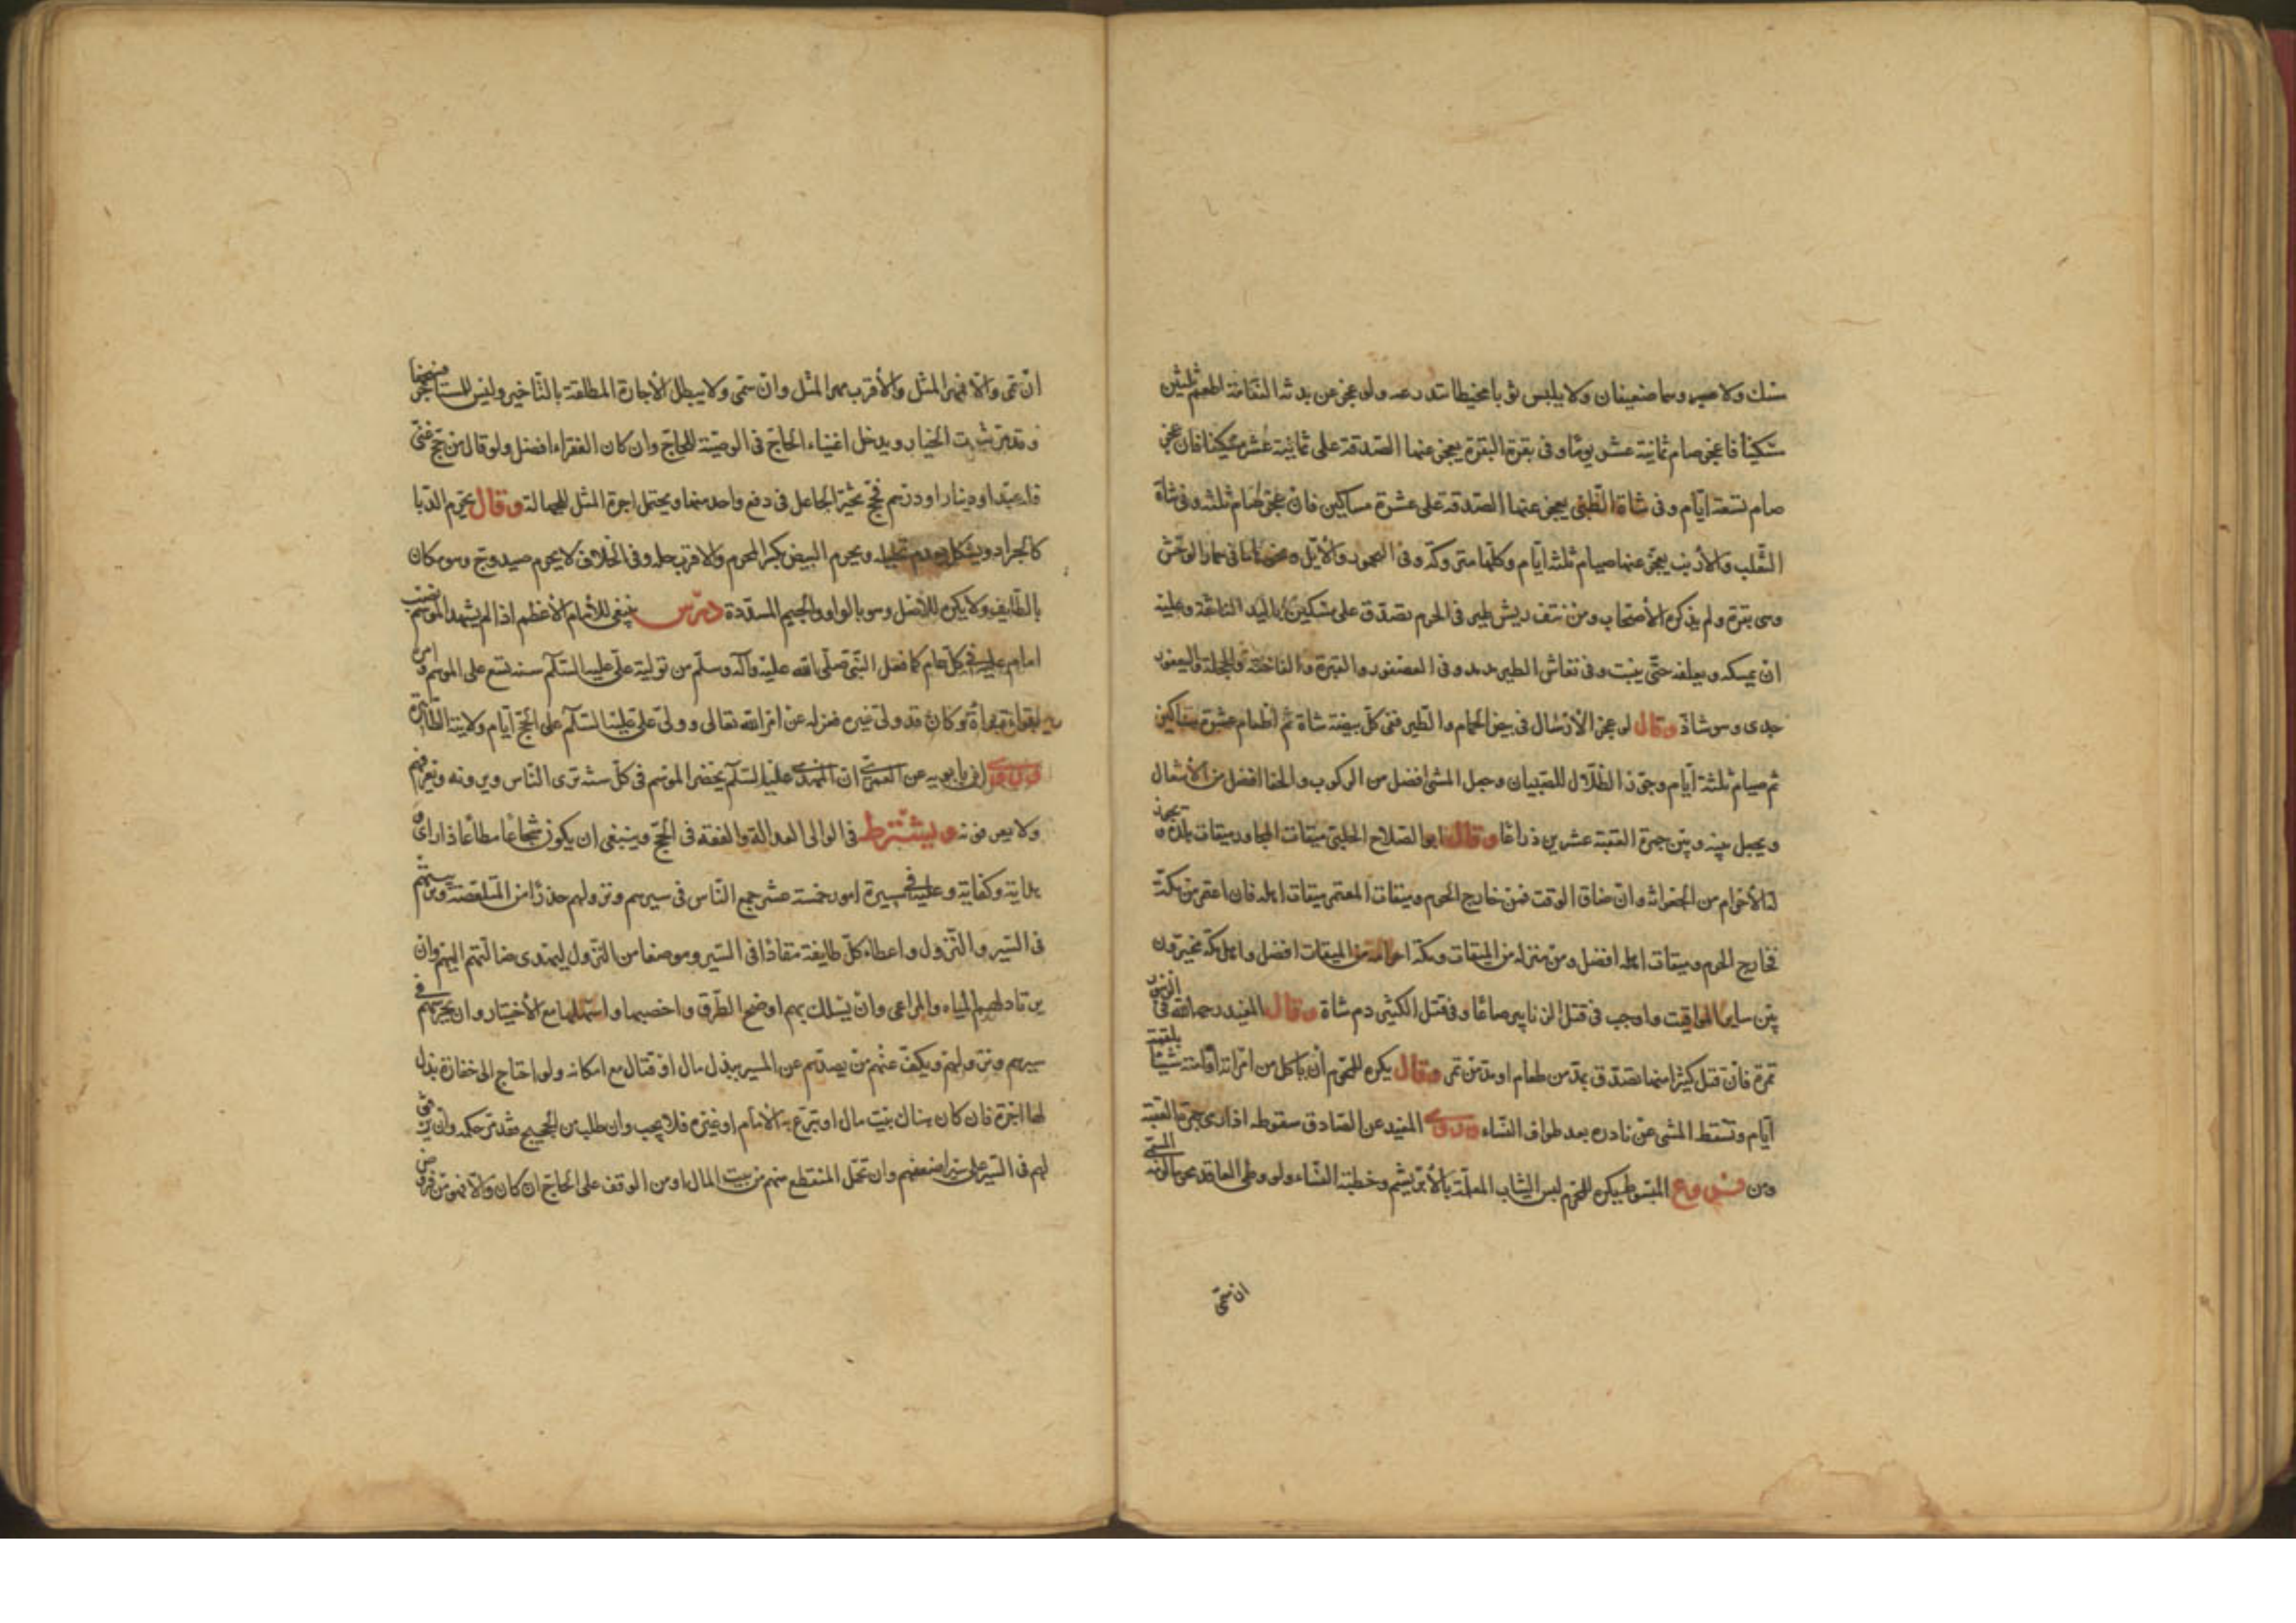 منك ولا صبر وهما ضعيفان ولا يلبس ثوبا مخيطا تدرعه ولو عجز عن بدنة النعامة اطعم ثلثين
مسكينا فان عجز صام ثمانية عشر يوما وفى بقرة البقرة يجزى عنها الصدقة على ثمانية عشر مسكينا فان عجز
صام تسعة ايام وفى شاة الظبى يجزى عنها الصدقة على عشرة مساكين فان عجز صام ثلثة وفى شاة
الثعلب والأرنب يجزى عنهما صيام ثلثة ايام وكلها مترو كذ وفى اليحمور والأيل فى حمار الوحش
وهى بقرة ولم يذكره الأصحاب ومن نتف ريش طير فى الحرم تصدق على مسكين باليد الناتفة وعليه
ان يمسكه ويعلفه حتى ينبت وفى نفاش الطير مد مد وفى العصفور والقبرة والفاختة والحجلة واليعفور
جدى وهو شاذ وقال لو عجز الأرسال فى بيض الحمام والطير ففى كل بيضة شاة ثم اطعام عشرة مساكين
ثم صيام ثلثة أيام وجوز الظلال للصبيان وجعل المشى افضل من الركوب والحفا افضل من الأنتعال
ويجعل بينه وبين جمرة العقبة عشرين ذراعا وقال ابو الصلاح الحلبى ميقات المجاور ميقات بلده ويجوز
له الأحرام من الجعرانة وان ضاق الوقت فمن خارج الحرم وميقات المعتمر ميقات اهله فان اعتمر من مكة
فخارج الحرم وميقات اهله افضل ومن منزله من الميقات ومكة احرامه من الميقات افضل واهل مكة مخيرون
بين ساير المواقيت واوجب فى قتل الزنابير صاعا وفى قتل الكثير دم شاة وقال المفيد رحمه الله فى الزنبور
تمرة فان قتل كثيرا منها تصدق بمد من طعام او مد من تمر وقال يكره للمحرم أن يأكل من امراته او امته شيئا يلقمته
أيام وتسقط المشى عن نادره بعد طواف النساء وروى المفيد عن الصادق سقوطه اذا رمى جمرة العقبة
ومن فروع المبسوط يكره للمحرم لبس الثياب المعلمة بالأبريشم وخطبة النساء ولو وطى العاقد محرما لزمه المسمى
ان سمى
ان سمى والا فمهر المثل والأقرب مهر المثل وان سمى ولا يبطل الأجارة المطلقة بالتأخير وليس للمستأجر فسخها
وقد مر ثبوت الخيار ويدخل اغنياء الحاج فى الوصية للحاج وان كان الفقراء افضل ولو قال من حج عنى
فله عبد او دينار او درهم فحج تخير الجاعل فى دفع واحد منها ويحتمل اجرة المثل للجهالة وقال يحرم الدبا
كالجراد ويشكل بعدم تحليله ويحرم البيض بكسر المحرم والاقرب حله وفى الخلاف لا يحرم صيد وج وهو مكان
بالطايف ولا يكره للأصل وهو بالواو والجيم المشددة درس ينبغى للأمام الأعظم اذا لم يشهد الموسم نصب
امام عليه فى كل عام كما فعل النبى صلى الله عليه وآله وسلم من تولية على عليه السلام سنة تسع على الموسم وامره
بقراءة براءة وكان قد ولى غيره فعزله عن امر الله تعالى وولى على عليه السلام على الحج ايام ولايته الظاهرة
وروى ابن بابويه عن العمرى ان المهدى عليه السلام يحضر الموسم فى كل سنة يرى الناس ويرونه ويعرفهم
ولا يعرفونه ويشترط فى الوالى العدالة والفقه فى الحج وينبغى ان يكون شجاعا مطاعا ذا راى و
هداية وكفاية وعليه فى مسيره امور خمسة عشر جمع الناس فى سيرهم ونزولهم حذرا من المتلصصة وترتيبهم
فى السير والنزول واعطاء كل طايفة مقادا فى السير وموضعا من النزول ليهتدى ضالتهم اليهم وان
يرتاد لهم المياه والمراعى وان يسلك بهم اوضح الطرق واخصبها واسهلها مع الأختيار وان يحرسهم فى
سيرهم ونزولهم ويكف عنهم من يصدهم عن المسير ببذل مال او قتال مع امكانه ولو احتاج الى خفارة بذل
لها اجرة فان كان هناك بيت مال او تبرع به الأمام او غيره فلا يجب وان طلب من الحجيج فقد مر حكمه وان يرفق
لهم فى السير على سير اضعفهم وان تحمل المنقطع منهم من بيت المال او من الوقف على الحاج ان كان والا فهو من فروض